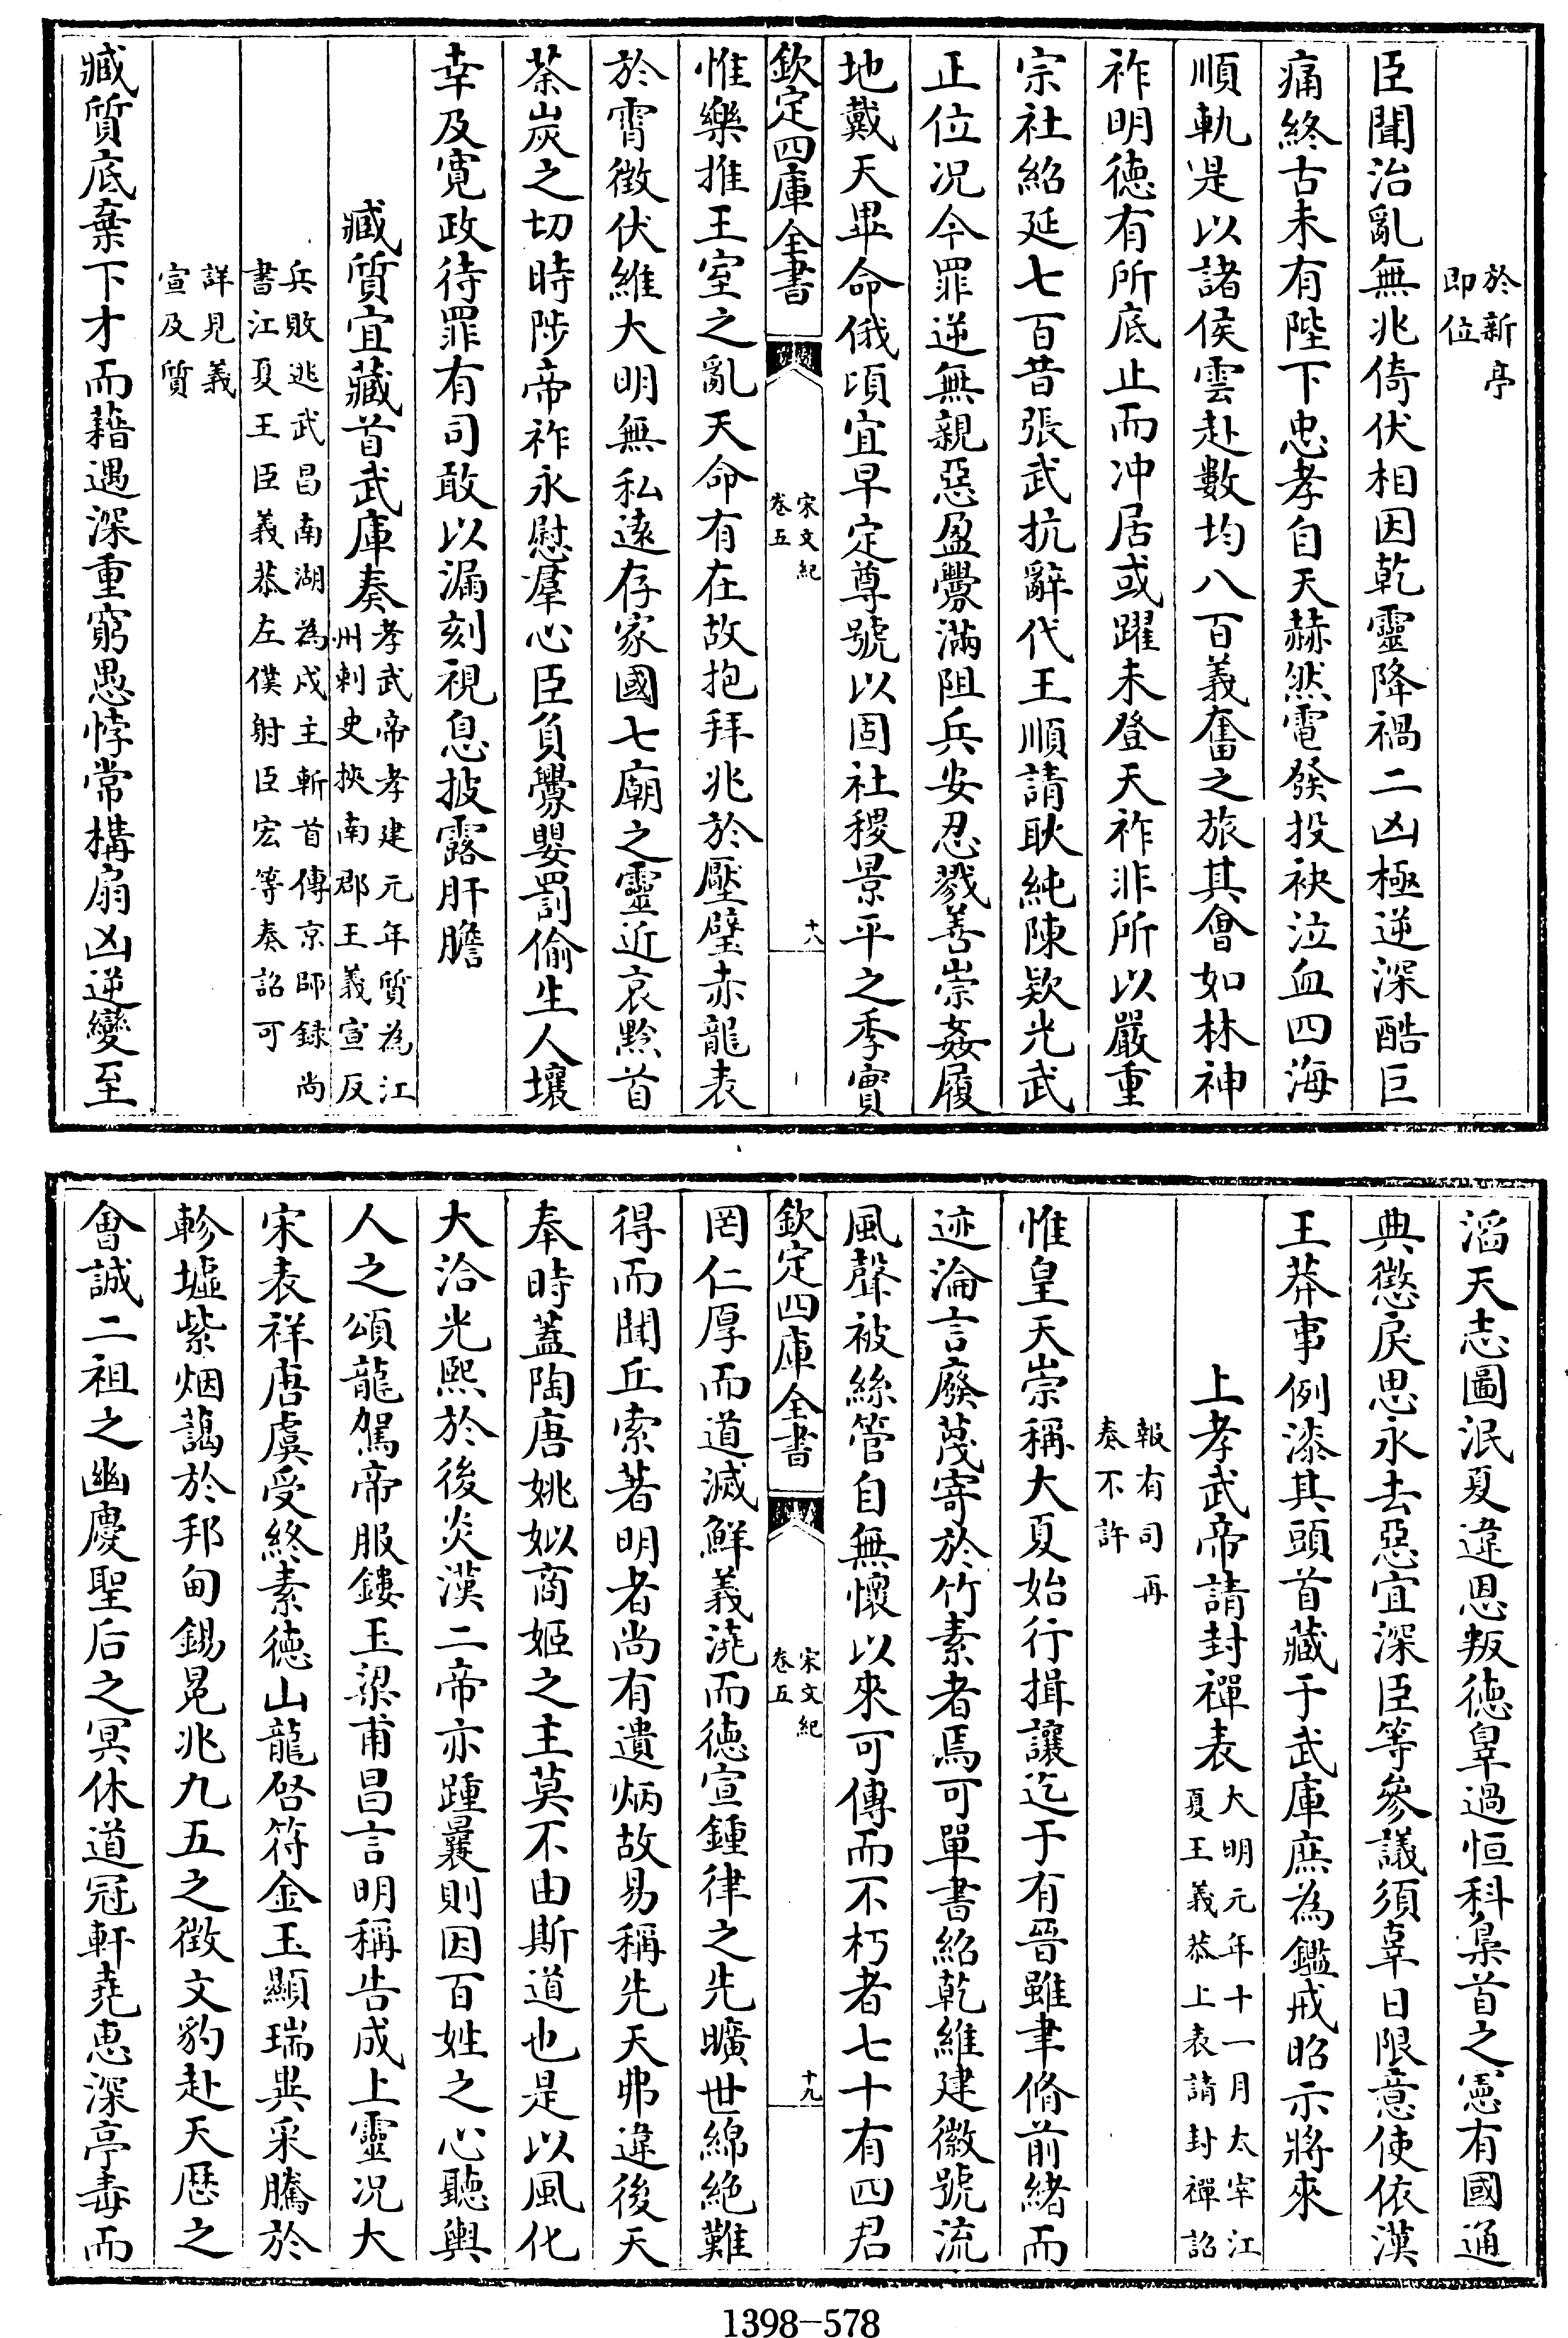 於新亭
即位
臣聞治亂無兆倚伏相因乾靈降禍二凶極逆深酷巨
痛終古未有陛下忠孝自天赫然電發投袂泣血四海
順軌是以諸侯雲赴數均八百義奮之旅其會如林神
祚明徳有所底止而冲居或躍未登天祚非所以嚴重
宗社紹延七百昔張武抗辭代王順請耿純陳欵光武
正位况今罪逆無親惡盈釁滿阻兵安忍戮善崇姦履
地戴天畢命俄頃宜早定尊號以固社稷景平之季實
欽定四庫全書
宋文紀
卷五
十八
惟樂推王室之亂天命有在故抱拜兆於壓璧赤龍表
於霄徴伏維大明無私逺存家國七廟之靈近哀黔首
荼炭之切時陟帝祚永慰羣心臣負釁嬰罰偷生人壤
幸及寛政待罪有司敢以漏刻視息披露肝膽
臧質宜藏首武庫奏
孝武帝孝建元年質為江
州刺史挾南郡王義宣反
兵敗逃武昌南湖為戍主斬首傳京師録尚
書江夏王臣義恭左僕射臣宏等奏詔可
詳見義
宣及質
臧質底棄下才而藉遇深重窮愚悖常構扇凶逆變至
滔天志圖泯夏違恩叛徳辠過恒科梟首之憲有國通
典懲戾思永去惡宜深臣等參議須辜日限意使依漢
王莽事例漆其頭首藏于武庫庶為鑑戒昭示將來
上孝武帝請封禪表
大明元年十一月太宰江
夏王義恭上表請封禪詔
報有司再
奏不許
惟皇天崇稱大夏始行揖讓迄于有晉雖聿脩前緒而
迹淪言廢蔑寄於竹素者焉可單書紹乾維建徽號流
風聲被絲管自無懐以來可傳而不朽者七十有四君
欽定四庫全書
宋文紀
卷五
十九
罔仁厚而道滅鮮義澆而徳宣鍾律之先曠世綿絶難
得而聞丘索著明者尚有遺炳故易稱先天弗違後天
奉時蓋陶唐姚姒商姬之主莫不由斯道也是以風化
大洽光熙於後炎漢二帝亦踵曩則因百姓之心聽輿
人之頌龍駕帝服鏤玉梁甫昌言明稱告成上靈况大
宋表祥唐虞受終素徳山龍啓符金玉顯瑞異采騰於
軫墟紫烟藹於邦甸錫冕兆九五之徴文豹赴天厯之
會誠二祖之幽慶聖后之冥休道冠軒堯恵深亭毒而
1398—578